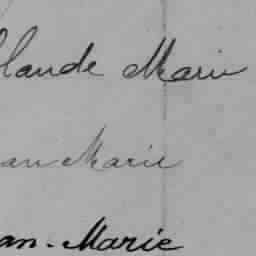 laude Marie
an Marie
an-Marie